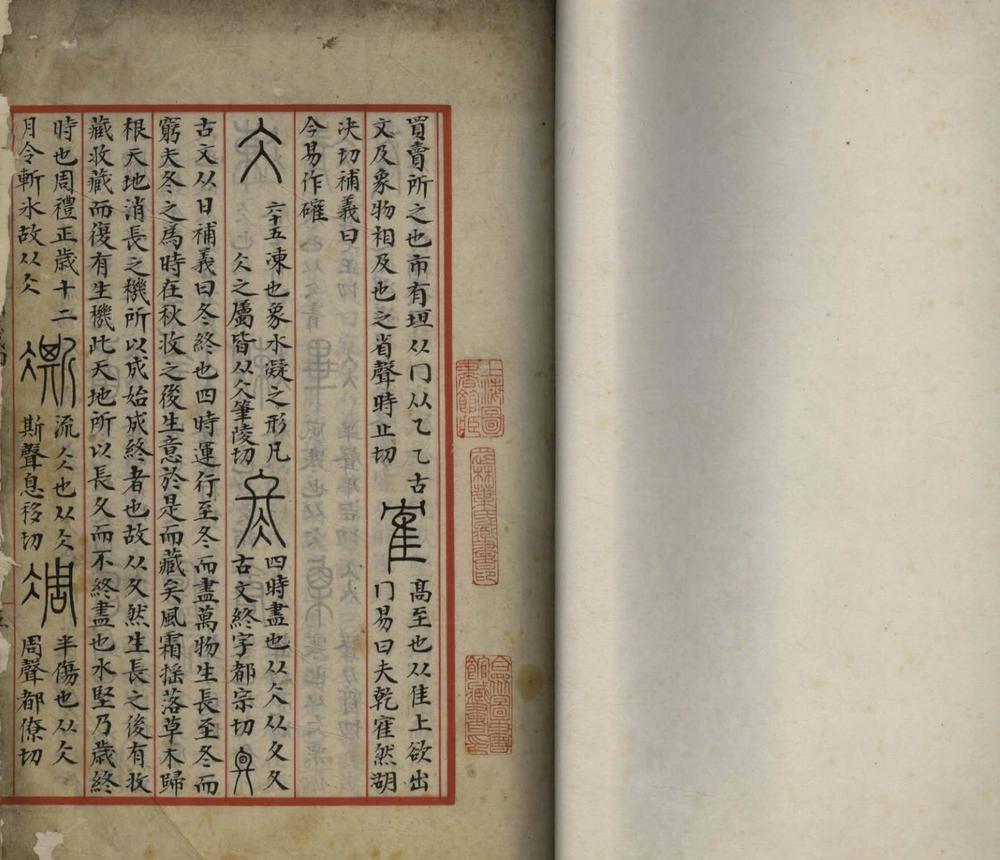 買賣所之也市有垣从冂从乁乁古
文及象物相及也之省聲時止切
隺
高至也从隹上欲出
冂易曰夫乾寉然胡
决切補義曰
今易作確
仌
六十五凍也象水凝之形凡
仌之屬皆从仌筆陵切
冬
四時盡也从仌从夂夂
古文終字都宗切
古文从日補義曰冬終也四時運行至冬而盡萬物生長至冬而
窮夫冬之為時在秋收之後生意於是而藏矣風霜搖落草木歸
根天地消長之機所以成始成終者也故从夂然生長之後有收
藏收藏而復有生機此天地所以長久而不終盡也水堅乃歲終
時也周禮正歲十二
月令斬冰故从仌
凘
流仌也从仌
斯聲息移切
凋
半傷也从仌
周聲都僚切
上海圖書館藏
武林葉氏藏書印
合眾圖書館藏書印